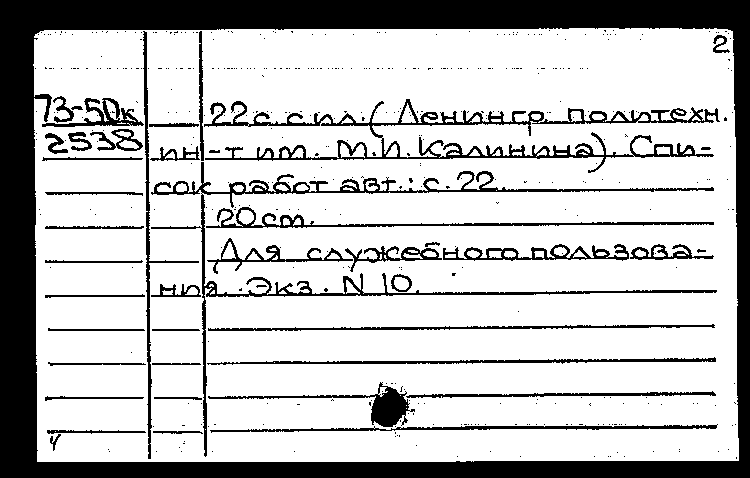 2
73-50к 22с. с ил. (Ленингр. политехн.
2538 ин-т им. М.И. Калинина). Спи-
сок работ авт.: с. 22.
20см.
Для служебного пользова-
ния. Экз. N 10.
ч